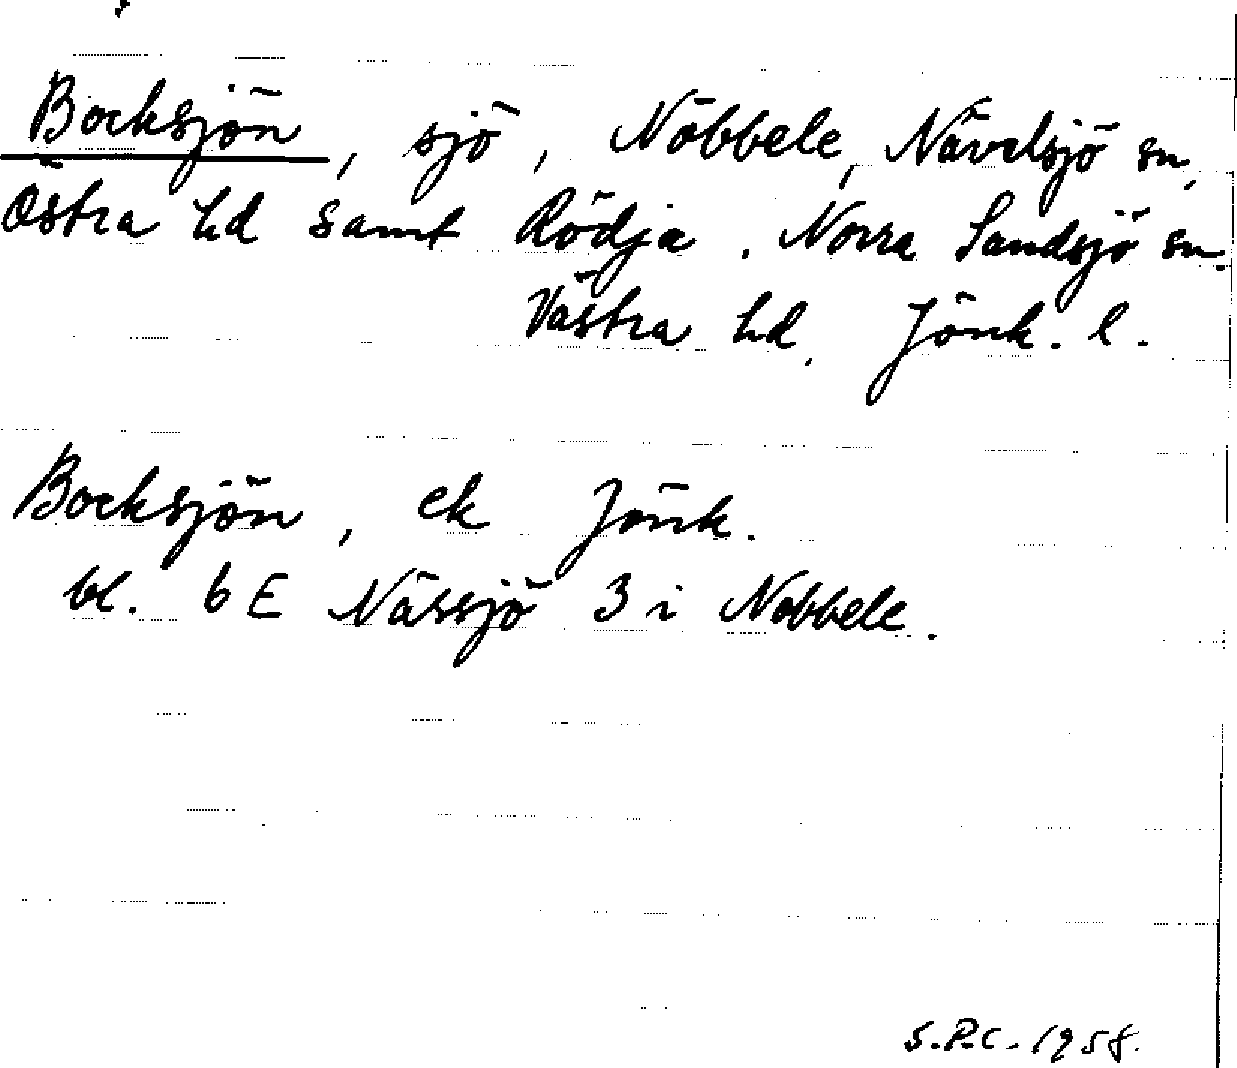 Bocksjön, sjö, Nöbbele, Nävelsjö sn,
Östra hd samt Rödja. Norra Sandsjö sn.
Västra hd, Jönk. l.
Bocksjön, ek Jönk.
bl. 6 E Nässjö 3 i Nöbbele.
S.P.C. 1958.